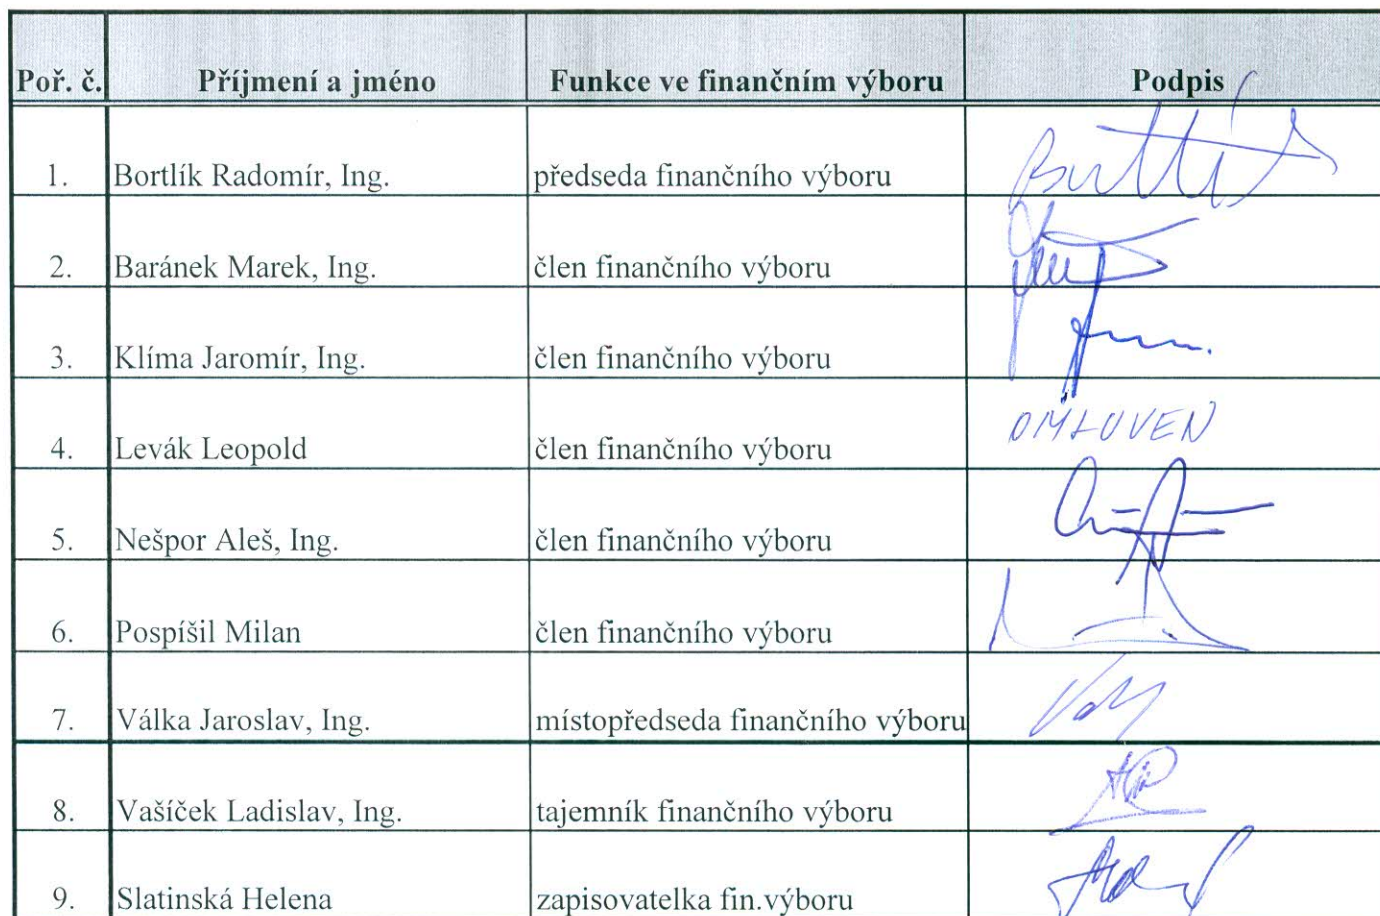 Poř. č. Příjmení a jméno Funkce ve finančním výboru Podpis
1. Bortlík Radomír, Ing. předseda finančního výboru
2. Baránek Marek, Ing. člen finančního výboru
3. Klíma Jaromír, Ing. člen finančního výboru
4. Levák Leopold člen finančního výboru OMLUVEN
5. Nešpor Aleš, Ing. člen finančního výboru
6. Pospíšil Milan člen finančního výboru
7. Válka Jaroslav, Ing. místopředseda finančního výboru
8. Vašíček Ladislav, Ing. tajemník finančního výboru
9. Slatinská Helena zapisovatelka fin.výboru